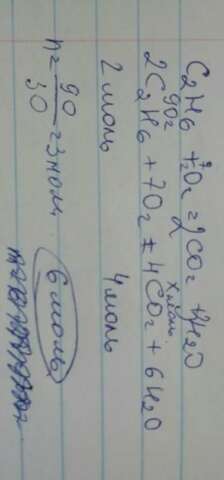 C2H6 + O2 = 2CO2 + H2O
90г х моль
2C2H6 + 7O2 = 4CO2 + 6H2O
2 моль 4 моль
n = 90/30 = 3 моль. 6 моль